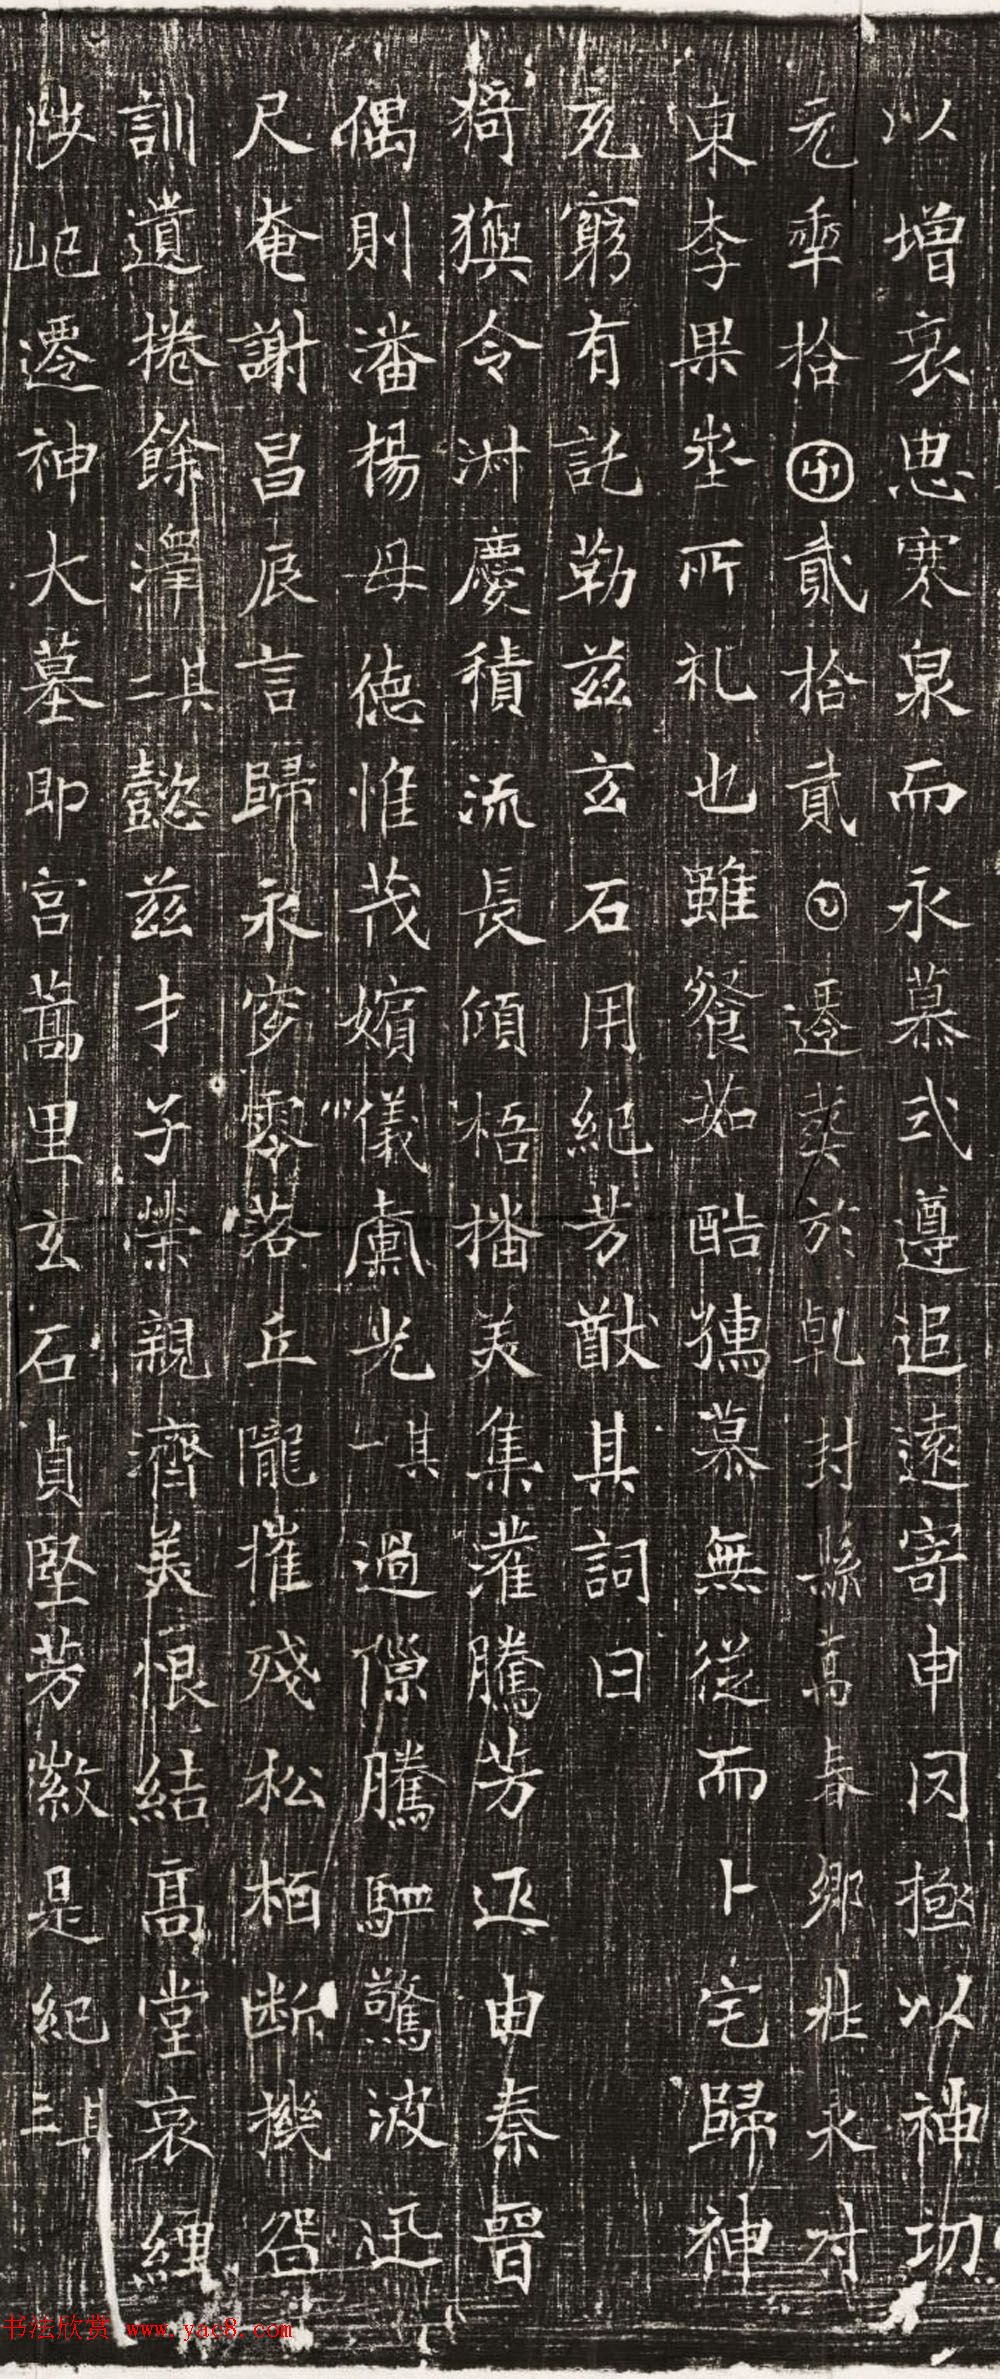 以增哀思寒泉而永慕式遵追遠寄申罔極以神切
元年拾𠥱貳拾貳☉遷葬於乹封縣高春鄉壯永村
東李果㘴所礼也雖飱茹酷攀慕無從而卜宅歸神
充窮有託勒兹玄石用紀芳猷其詞曰
猗歟令淋慶積流長傾梧播美集灌騰芳匹由秦晉
偶則潘楊母德惟茂嬪儀允光其一過隙騰駟驚波迅
尺奄謝昌辰言歸永穸零落丘隴摧殘松栢断機咎
訓遺捲餘澤其二懿兹才子榮親濟美恨結髙堂哀纏
陟屺遷神大墓即宮蒿里玄石貞堅芳徽是紀其三
书法欣赏 www.yac8.com